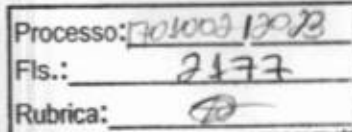 Processo: 701002/2023
Fls.: 2177
Rubrica: